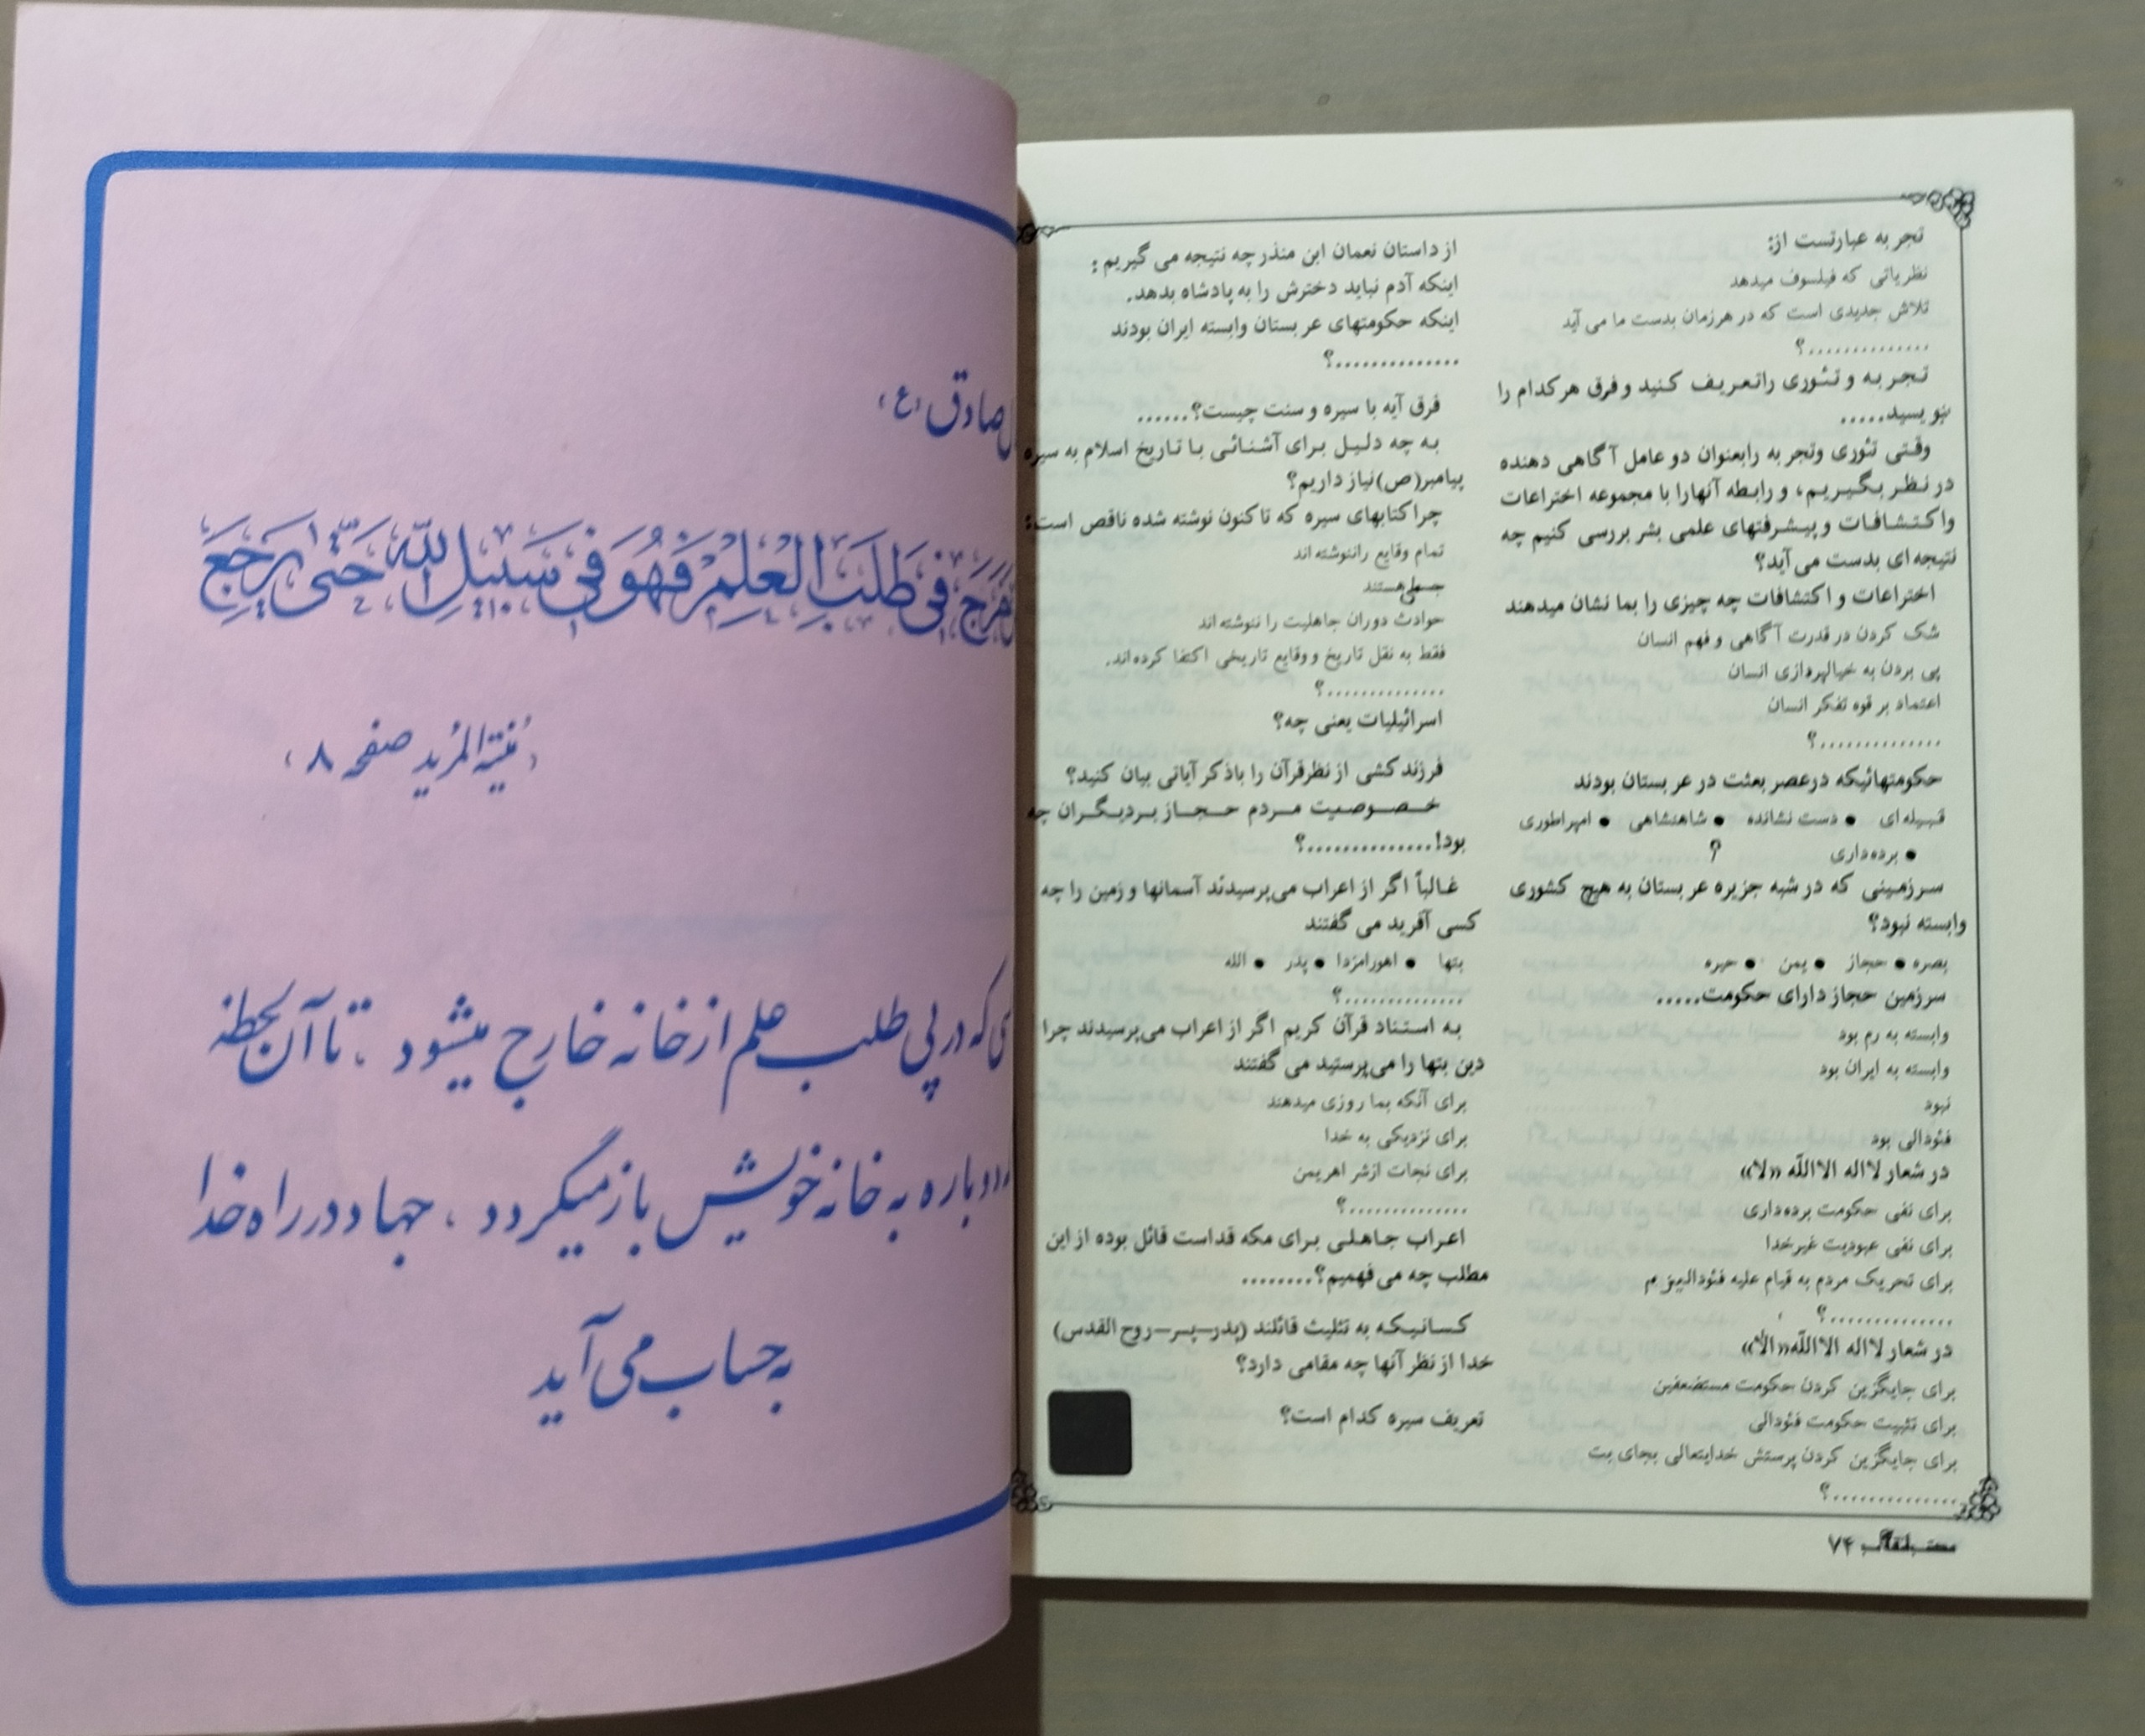 تجربه عبارتست از:
نظریاتی که فیلسوف میدهد
تلاش جدیدی است که در هرزمان بدست ما می آید
..............؟
تجربه و تئوری راتعریف کنید و فرق هرکدام را
بنویسید.....
وقتی تئوری وتجربه رابعنوان دو عامل آگاهی دهنده
در نظر بگیریم، و رابطه آنهارا با مجموعه اختراعات
واکتشافات و پیشرفتهای علمی بشر بررسی کنیم چه
نتیجه ای بدست می آید؟
اختراعات و اکتشافات چه چیزی را بما نشان میدهند
شک کردن در قدرت آگاهی و فهم انسان
پی بردن به خیالپردازی انسان
اعتماد بر قوه تفکر انسان
..............؟
حکومتهائیکه درعصر بعثت در عربستان بودند
قبیله ای ● دست نشانده ● شاهنشاهی ● امپراطوری
● برده داری ؟
سرزمینی که در شبه جزیره عربستان به هیچ کشوری
وابسته نبود؟
بصره ● حجاز ● یمن ● حیره
سرزمین حجاز دارای حکومت.....
وابسته به رم بود
وابسته به ایران بود
نبود
فئودالی بود
در شعار لااله الاالله «لا»
برای نفی حکومت برده داری
برای نفی عبودیت غیرخدا
برای تحریک مردم به قیام علیه فئودالیزم
..............؟
در شعار لااله الاالله «الا»
برای جایگزین کردن حکومت مستضعفین
برای تثبیت حکومت فئودالی
برای جایگزین کردن پرستش خدایتعالی بجای بت
..............؟
از داستان نعمان ابن منذر چه نتیجه می گیریم:
اینکه آدم نباید دخترش را به پادشاه بدهد.
اینکه حکومتهای عربستان وابسته ایران بودند
..............؟
فرق آیه با سیره و سنت چیست؟......
به چه دلیل برای آشنائی با تاریخ اسلام به سیره
پیامبر(ص) نیاز داریم؟
چراکتابهای سیره که تاکنون نوشته شده ناقص است:
تمام وقایع راننوشته اند
جعلی هستند
حوادث دوران جاهلیت را ننوشته اند
فقط به نقل تاریخ و وقایع تاریخی اکتفا کرده اند.
..............؟
اسرائیلیات یعنی چه؟
فرزندکشی از نظرقرآن را باذکر آیاتی بیان کنید؟
خصوصیت مردم حجاز بردیگران چه
بود!..............؟
غالباً اگر از اعراب می‌پرسیدند آسمانها و زمین را چه
کسی آفرید می گفتند
بتها ● اهورامزدا ● پدر ● الله
..............؟
به استناد قرآن کریم اگر از اعراب می‌پرسیدند چرا
دین بتها را می‌پرستید می گفتند
برای آنکه بما روزی میدهند
برای نزدیکی به خدا
برای نجات ازشر اهریمن
..............؟
اعراب جاهلی برای مکه قداست قائل بوده از این
مطلب چه می فهمیم؟........
کسانیکه به تثلیث قائلند (پدر-پسر-روح القدس)
خدا از نظر آنها چه مقامی دارد؟
تعریف سیره کدام است؟
۷۴
صادق (ع)
فِی طَلَبِ الْعِلْمِ فَهُوَ فِی سَبیلِ اللّهِ حَتّی یَرجِعَ
(مُنیَةالمُرید صفحه ۸)
که در پی طلب علم از خانه خارج میشود، تا آن لحظه
دوباره به خانه خویش بازمیگردد، جهاد در راه خدا
به حساب می آید